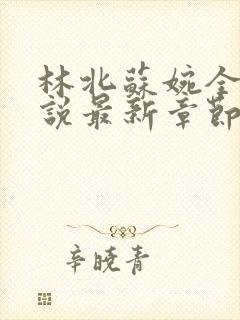 林北蘇婉全
説最新章節
辛曉青